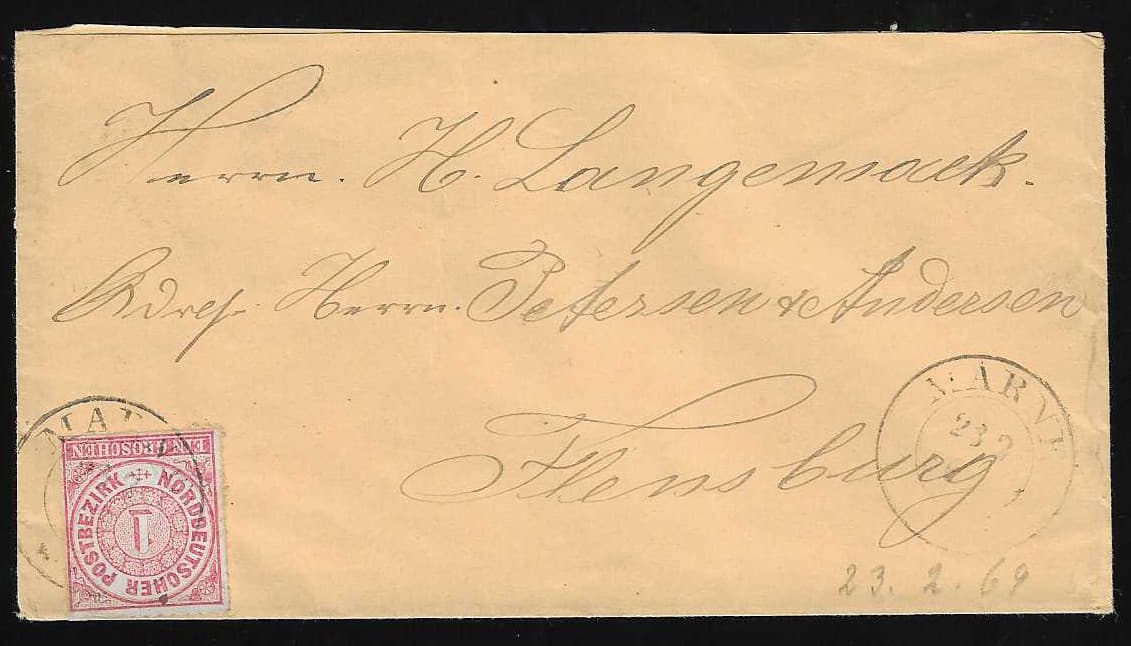 Herrn. H. Langemaek.
Adress. Herrn. Petersen & Andersen
Flensburg
MARNE
23 2
MAR
EIN GROSCHEN
NORDDEUTSCHER POSTBEZIRK
1
23. 2. 69